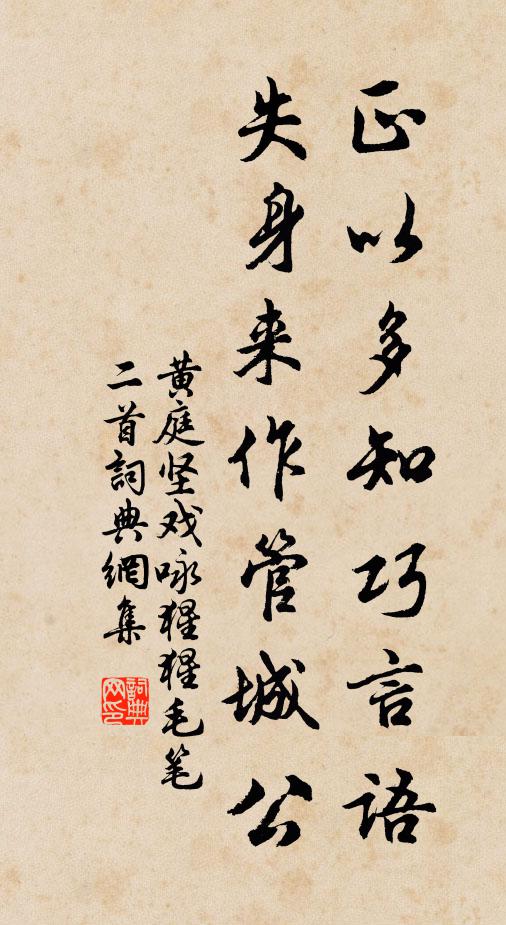 正以多知巧言语
失身来作管城公
黄庭坚戏咏猩猩毛笔
二首詞典網集
詞典
网印